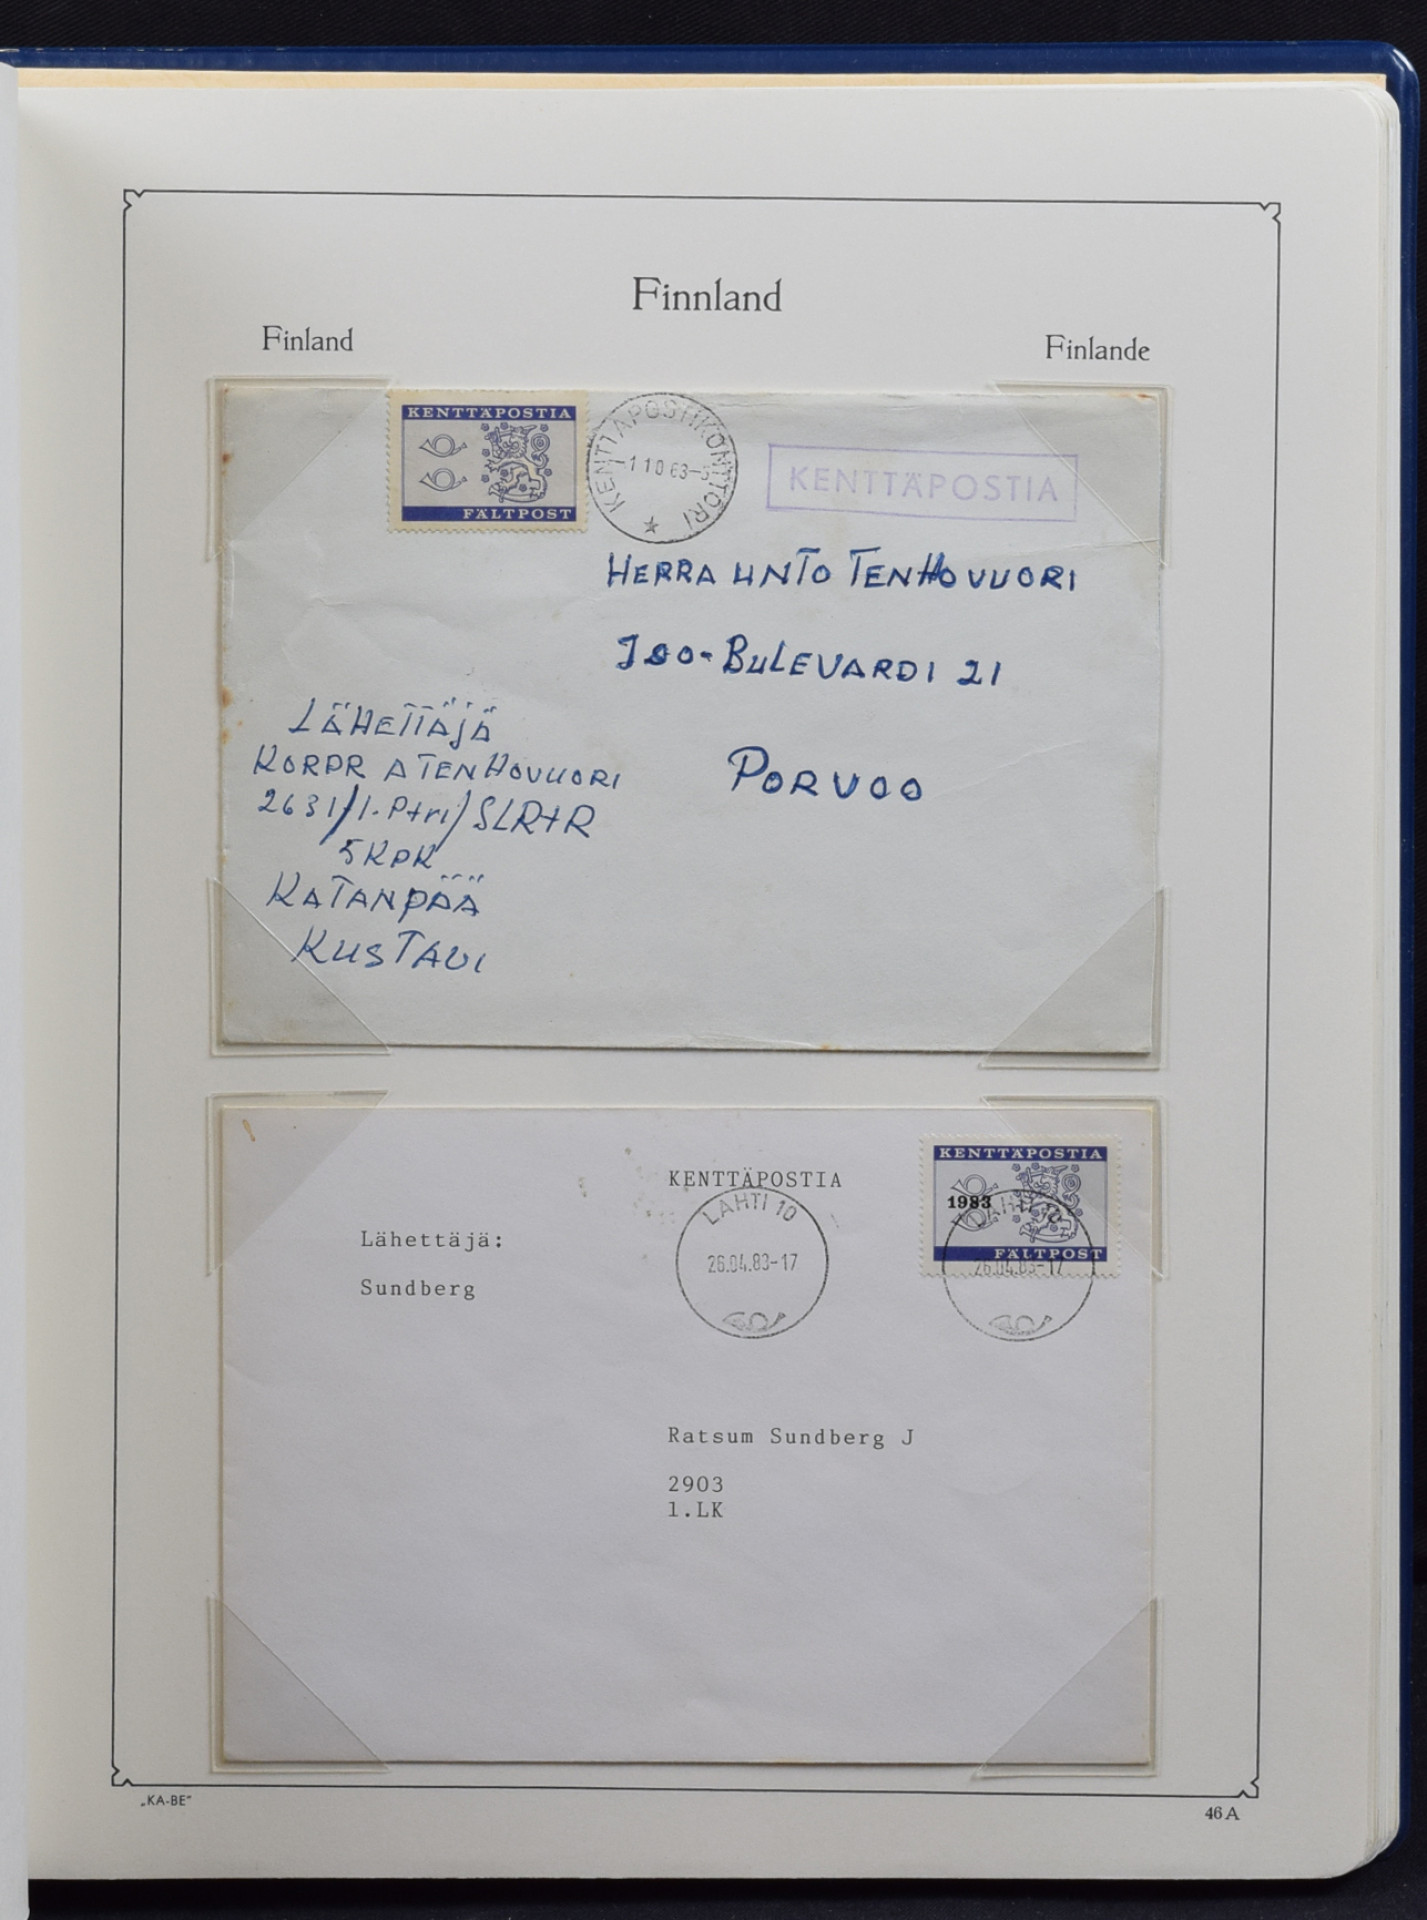 Finnland
Finland
Finlande
KENTTÄPOSTIA
FÄLTPOST
KENTTÄPOSTIKONTTORI
-1 10 63-5
KENTTÄPOSTIA
HERRA UNTO TENHOVUORI
ISO-BULEVARDI 21
PORVOO
LÄHETTÄJÄ
KORPR A TENHOVUORI
2631/1.Ptri/SLRtR
5KPK
KATANPÄÄ
KUSTAVI
KENTTÄPOSTIA
1983
FÄLTPOST
KENTTÄPOSTIA
LAHTI 10
26.04.83-17
LAHTI 10
26.04.83-17
Lähettäjä:
Sundberg
Ratsum Sundberg J
2903
1.LK
„KA-BE“
46 A